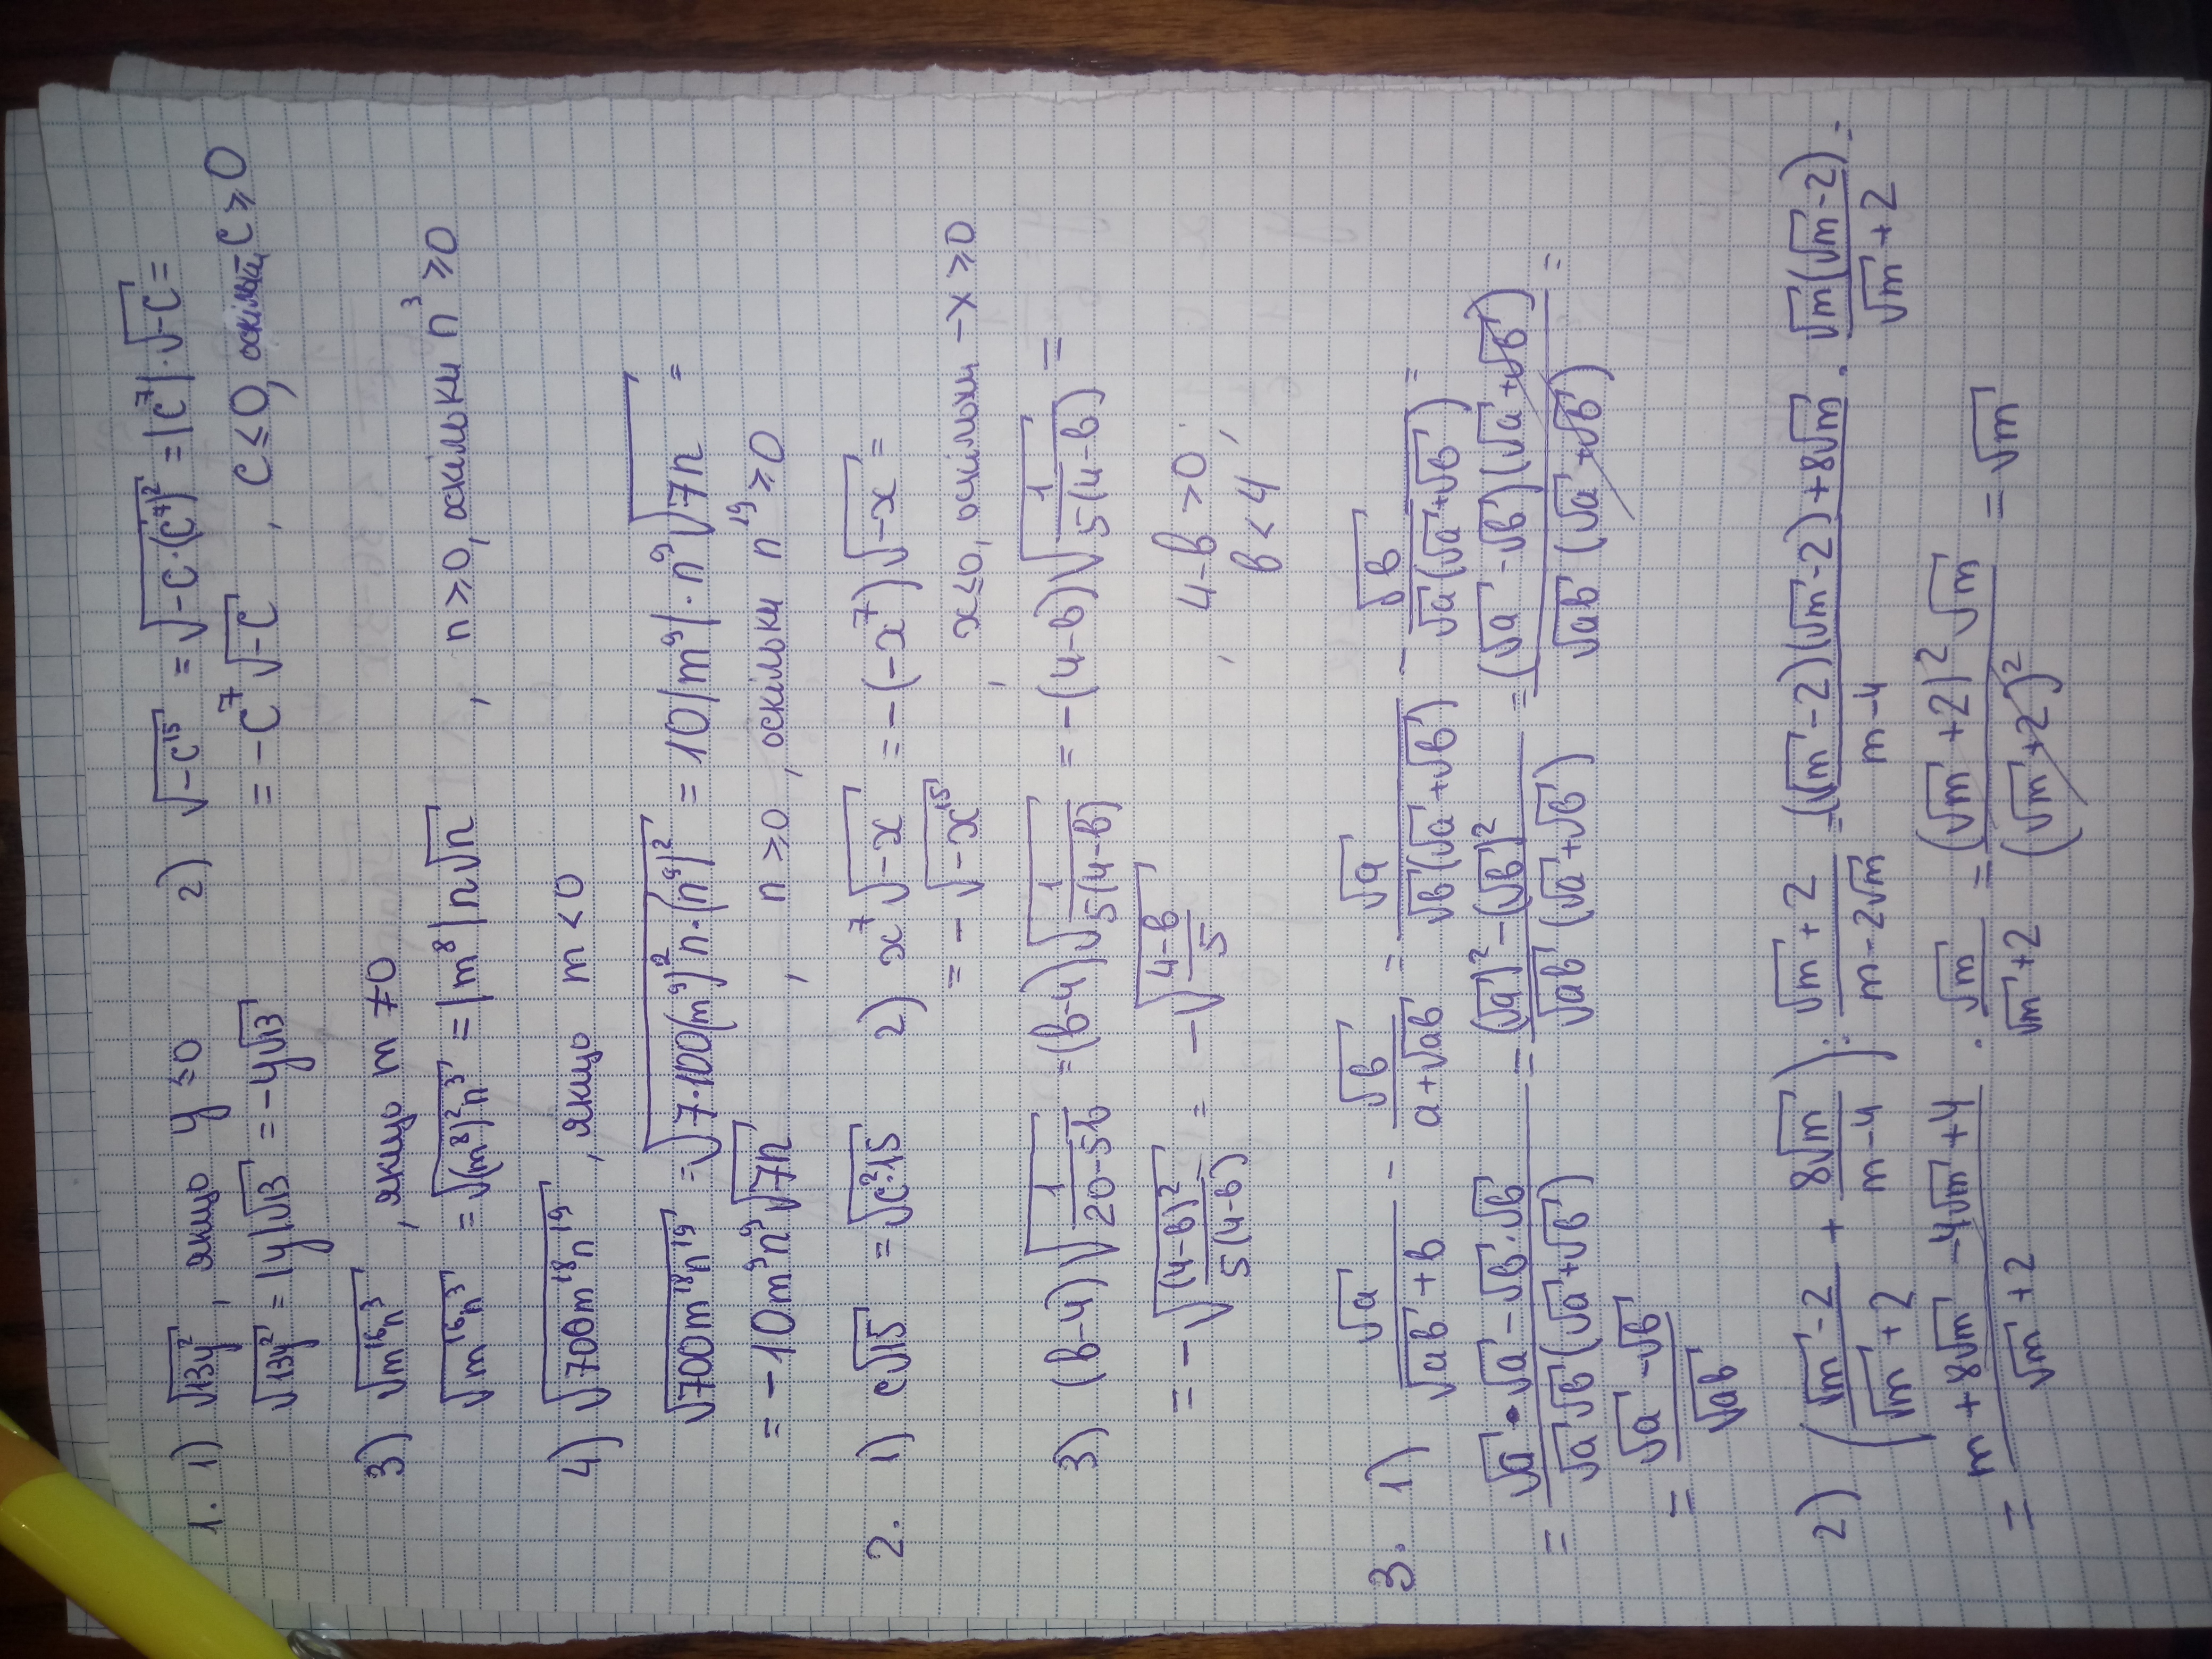 1. 1) √13y², якщо y ≤0 2) √-c¹⁵ = √-c·(c⁷)² = |c⁷|·√-c =
√13y² = |y|√13 = -y√13 = -c⁷√-c , c≤0, оскільки, c ≥0
3) √m¹⁶n³ , якщо m ≠0
√m¹⁶n³ = √(m⁸)²n³ = |m⁸|n√n , n ≥0, оскільки n³ ≥0
4) √700m¹⁸n¹⁹ , якщо m <0
√700m¹⁸n¹⁹ = √7·100(m⁹)²n·(n⁹)² = 10|m⁹|·n⁹√7n =
= -10m⁹n⁹√7n , n ≥0, оскільки n¹⁹ ≥0
2. 1) c√15 = √c²15 2) x⁷√-x = -(-x⁷)√-x =
= -√-x¹⁵ , x≤0, оскільки -x ≥0
3) (b-4)√1/(20-5b) =(b-4)√1/(5(4-b)) = -(4-b)√1/(5(4-b)) =
= -√(4-b)²/(5(4-b)) = -√(4-b)/5 , 4-b >0
b <4,
3. 1) √a/(√ab+b) - √b/(a+√ab) = √a/(√b(√a+√b)) - √b/(√a(√a+√b)) =
= (√a·√a-√b·√b)/(√a√b(√a+√b)) = ((√a)²-(√b)²)/(√ab(√a+√b)) = ((√a-√b)(√a+√b))/(√ab(√a+√b)) =
= (√a-√b)/√ab
2) ((√m-2)/(√m+2) + 8√m/(m-4)) : (√m+2)/(m-2√m) = ((√m-2)(√m-2)+8√m)/(m-4) · (√m(√m-2))/(√m+2) =
= (m+8√m-4√m+4)/(√m+2) · √m/(√m+2) = ((√m+2)²√m)/(√m+2)² = √m